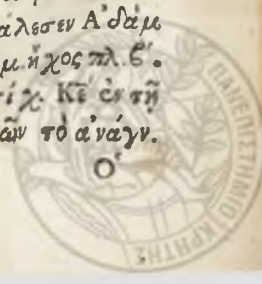 άλεσεν Ἀδάμ
μ. ἦχος πλ. β΄.
ίχ. Κε̄ ἐν τῇ
ῶν τὸ ἀνάγν.
Ὁ
ΠΑΝΕΠΙΣΤΗΜΙΟ ΚΡΗΤΗΣ